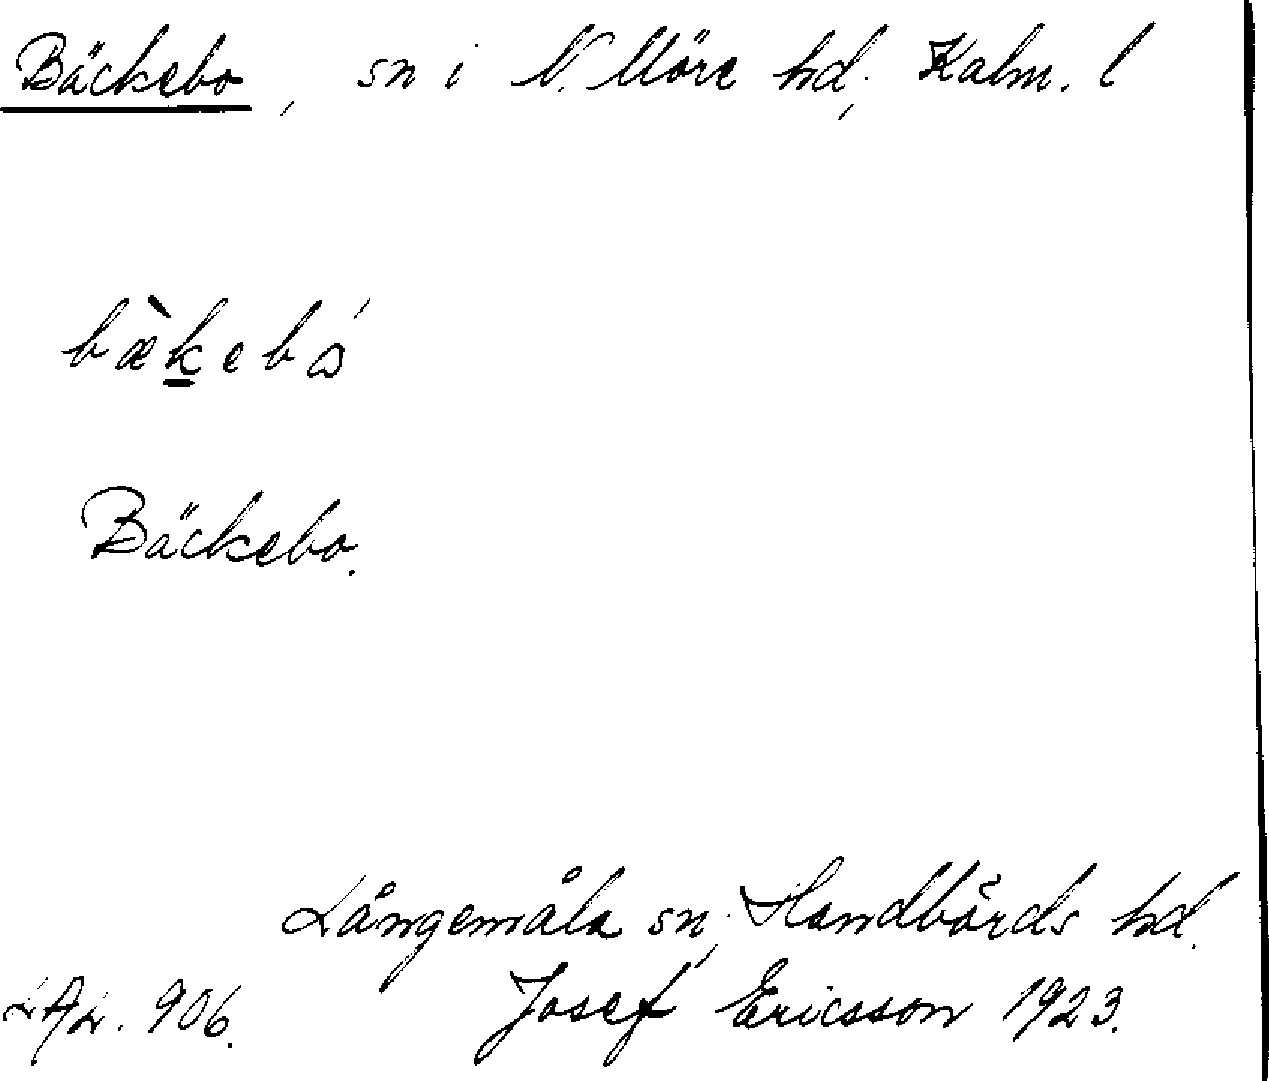 Bäckebo, sn i N. Möre hd, Kalm. l
bæ̀kebɷ́
Bäckebo.
Långemåla sn, Handbörds hd.
LAL. 906. Josef Ericsson 1923.